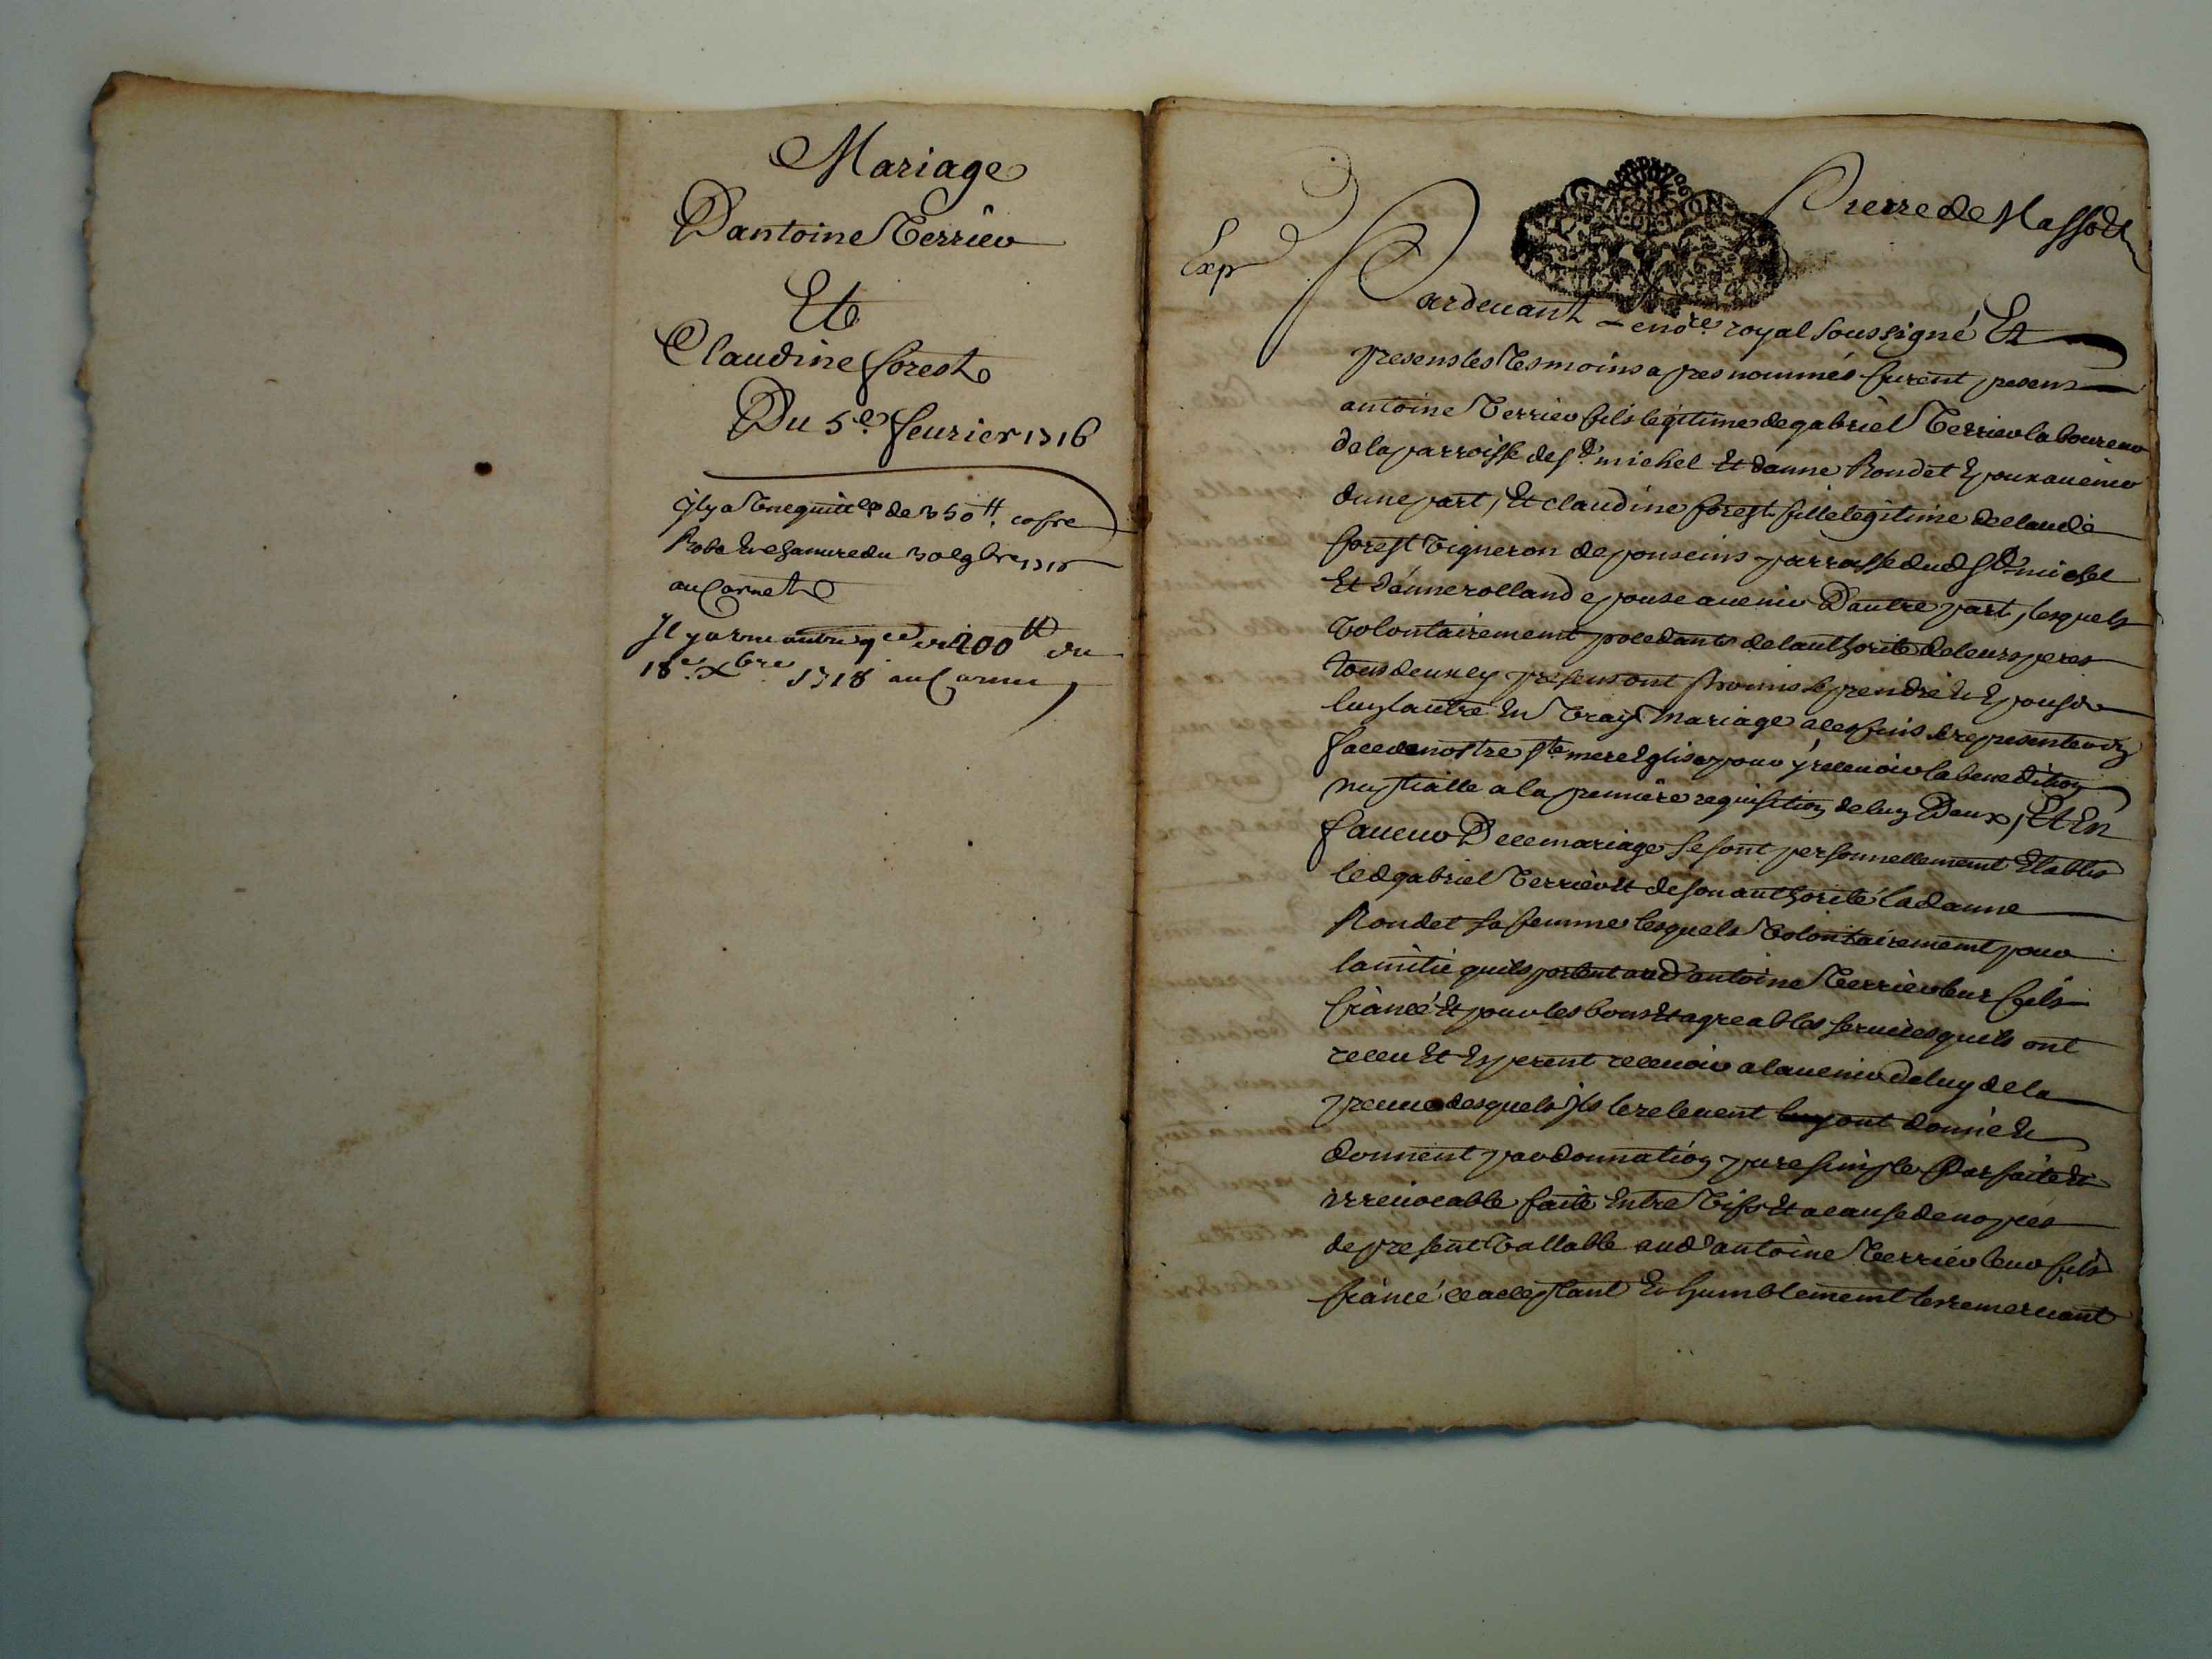 Mariage
Dantoine Terrier
Et
Claudine forest
Du 5e. feurier 1716
Il y a une quittce de 350 tt. cofre
Robe et du 30e 9bre 1716
au Carnet
Il y a une autre qce de 200 tt du
18e. Xbre 1718 au Carnet
GENERATION
Pierre de Masso
Exp
Pardeuant Le nore. royal soussigné Et
presens les tesmoins apres nommés furent presens
antoine Terrier fils legitime de gabriel Terrier laboureur
de la parroisse de st. michel Et danne Rondet Epoux auenir
dune part, Et claudine forest fille legitime de claude
forest vigneron de pouseins parroisse dud st. michel
Et danne rolland epouse auenir Dautre part, lesquels
volontairement procedants de lauthorité de leurs peres
tous deux icy presens ont promis se prendre et Epouser
luy lautre En vray mariage a ces fins se representer En
face de nostre ste. mere Eglise pour y receuoir la benediction
nuptialle a la premiere requisition de luy Deux, Et En
faueur De ce mariage se sont personnellement Etablis
led gabriel Terrier et de son authorité lad anne
Rondet sa femme lesquels volontairement pour
lamitié quils portent aud antoine Terrier leur fils
fiancé Et pour les bons Et agreables seruices quils ont
receu Et Esperent receuoir a lauenir de luy de la
preuue desquels ils le releuent luy ont donné et
donnent par donnation pure simple parfaite et
irreuocable faite Entre vifs Et a cause de nopces
de present vallable aud antoine Terrier leur fils
fiancé ce acceptant Et humblement les remerciant